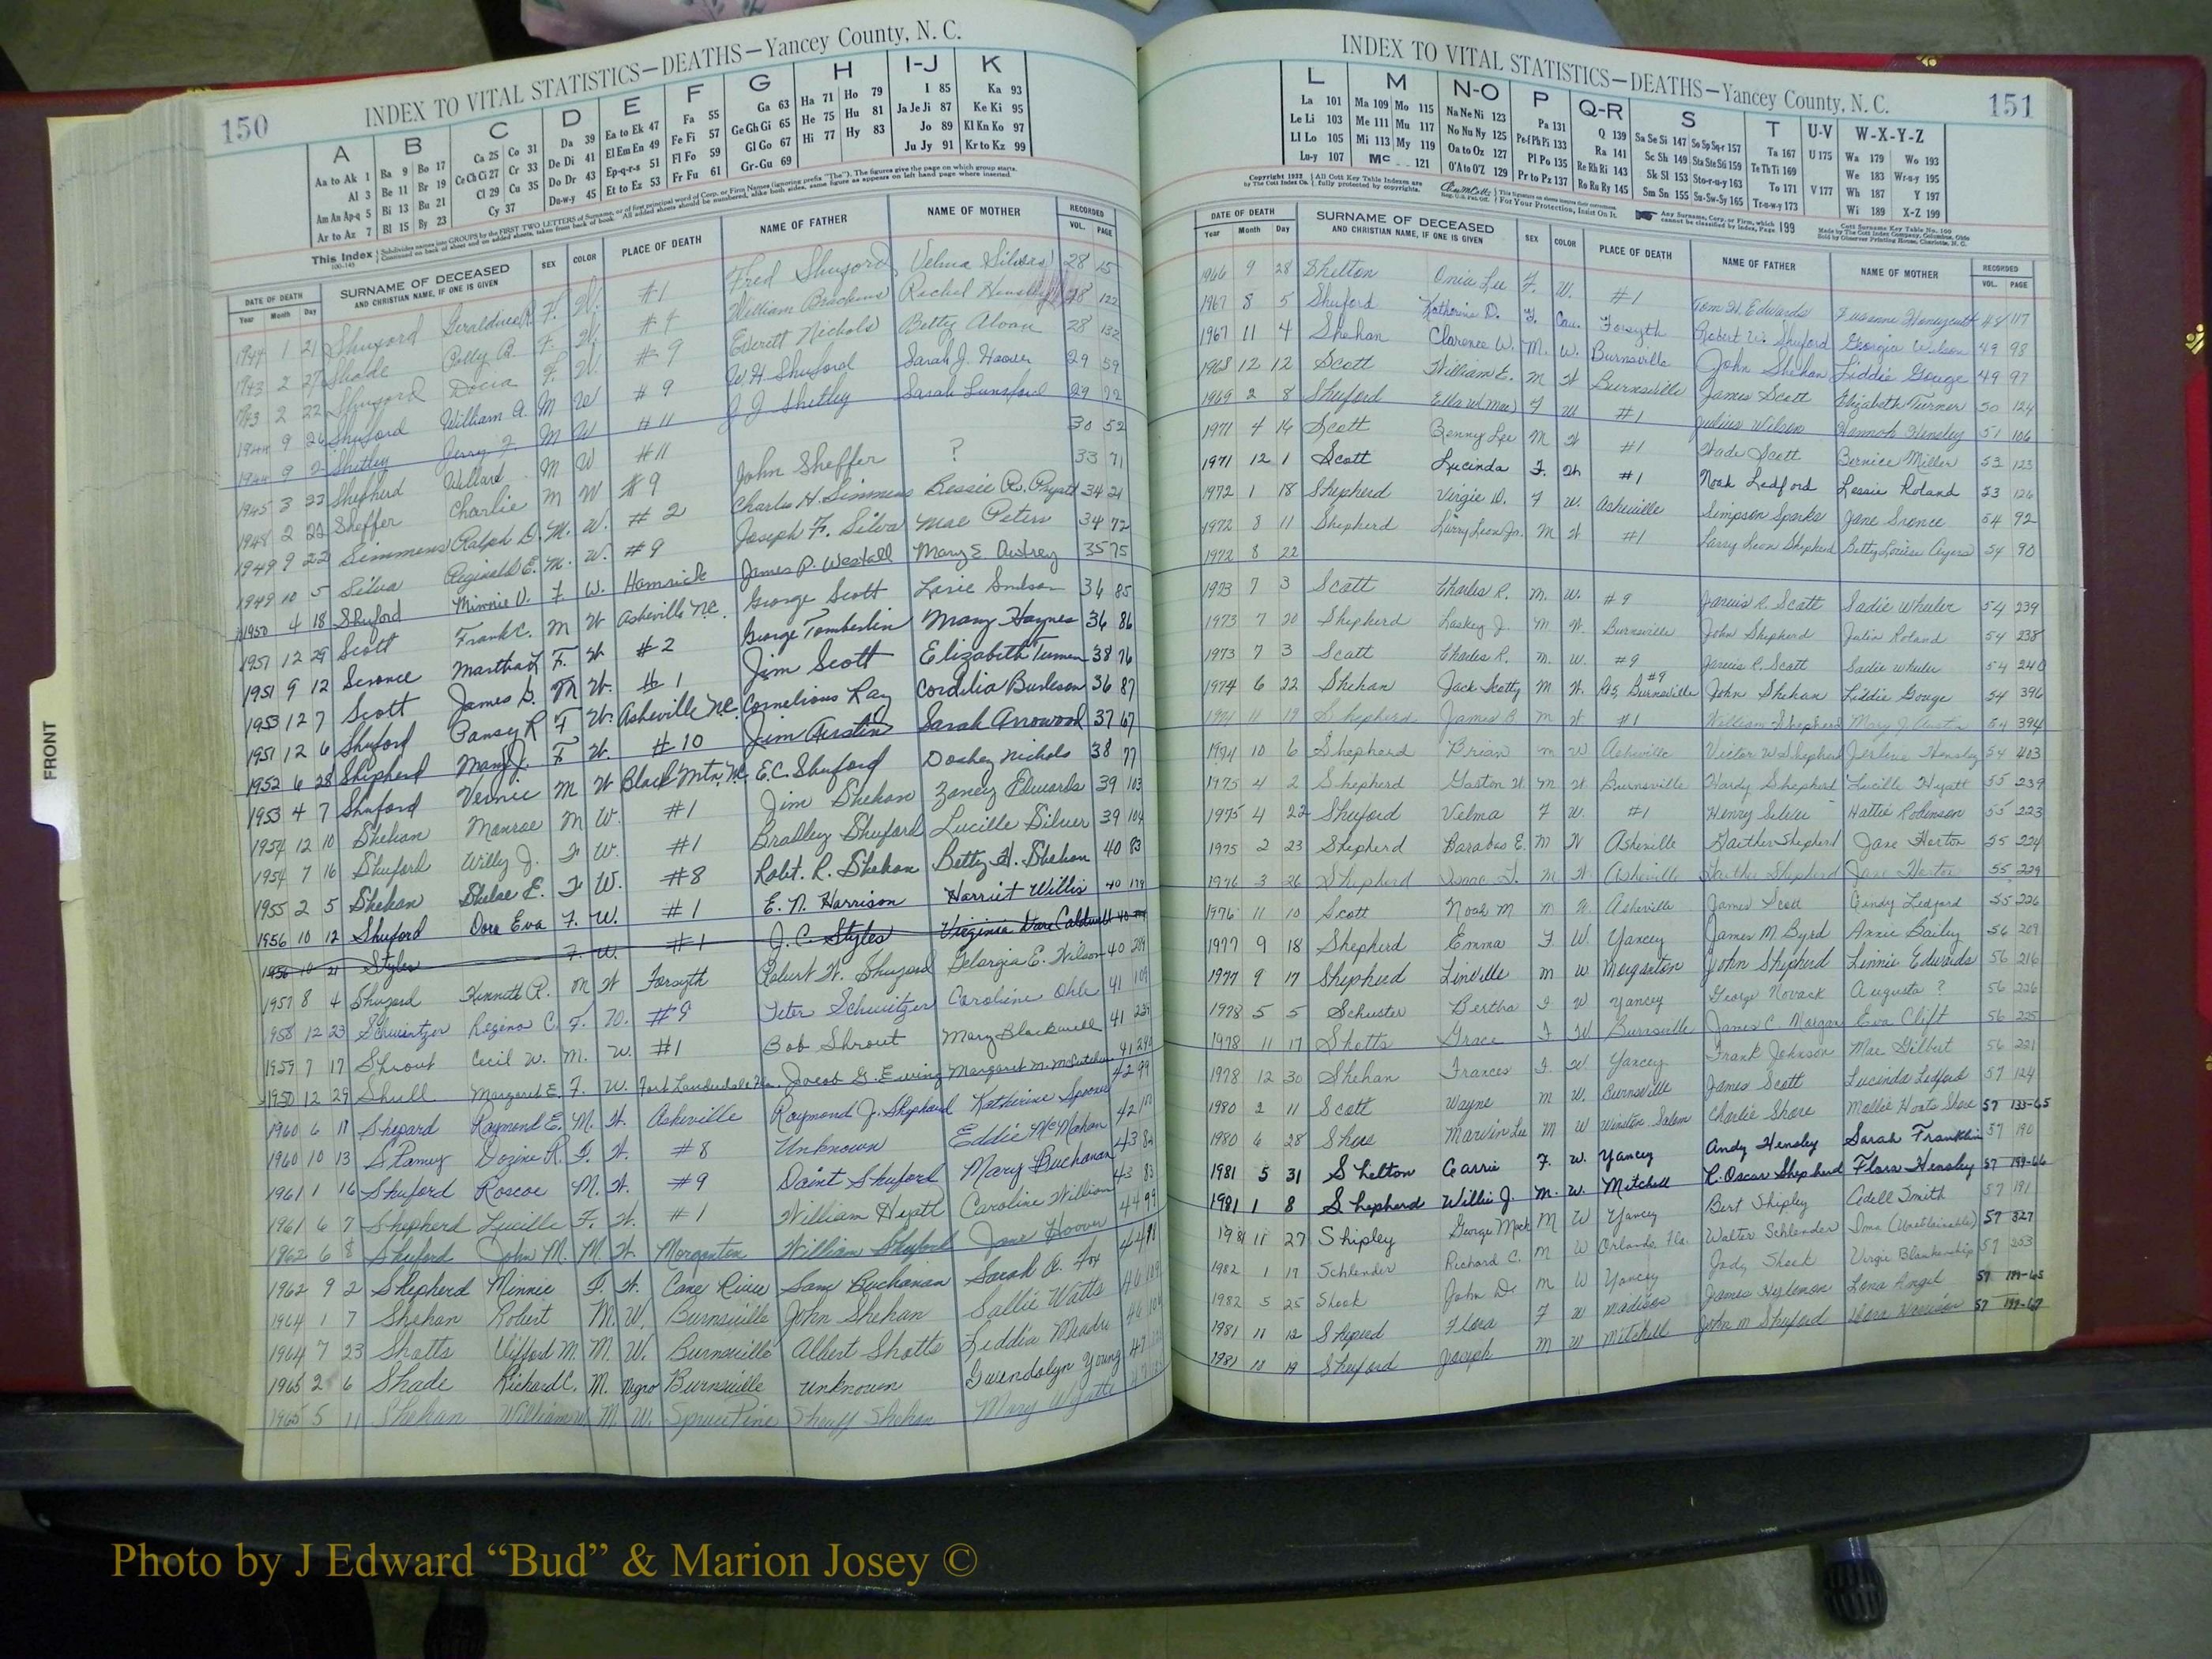 150
INDEX TO VITAL STATISTICS—DEATHS—Yancey County, N. C.
A B C D E F G H I-J K
Aa to Ak 1 Ba 9 Bo 17 Ca 25 Co 31 Da 39 Ea to Ek 47 Fa 55 Ga 63 Ha 71 Ho 79 I 85 Ka 93
Al 3 Be 11 Br 19 Ce Ch Ci 27 Cr 33 De Di 41 El Em En 49 Fe Fi 57 Ge Gh Gi 65 He 75 Hu 81 Ja Je Ji 87 Ke Ki 95
Am An Ap-q 5 Bi 13 Bu 21 Cl 29 Cu 35 Do Dr 43 Ep-q-r-s 51 Fl Fo 59 Gl Go 67 Hi 77 Hy 83 Jo 89 Kl Kn Ko 97
Ar to Az 7 Bl 15 By 23 Cy 37 Du-w-y 45 Et to Ez 53 Fr Fu 61 Gr-Gu 69 Ju Jy 91 Kr to Kz 99
This Index
DATE OF DEATH SURNAME OF DECEASED SEX COLOR PLACE OF DEATH NAME OF FATHER NAME OF MOTHER RECORDED
Year Month Day AND CHRISTIAN NAME, IF ONE IS GIVEN VOL. PAGE
1944 1 21 Shuford F. W. #1 Fred Shuford Velma 28 15
1943 2 27 Shade Polly F. W. #4 William Rachel 28 122
1943 2 22 Shuford Dicia F. W. #9 Everett Nichols Betty 28 132
1944 9 26 Shuford William A. M W #9 W. H. Shuford Sarah J. Hoover 29 59
1944 9 2 Shetley Jerry M W #11 J. J. Shetley Sarah Lunsford 29 72
1945 3 22 Shepherd Willard M W #11 30 52
1948 2 22 Sheffer Charlie M W #9 John Sheffer ? 33 71
1949 9 22 Simmens Ralph D. M. W. #2 Charles H. Simmens Bessie R. 34 21
1949 10 5 Silva Reginald E. M. W. #9 Joseph F. Silva Mae Peters 34 72
1950 4 18 Shuford Minnie V. F. W. Hamrick James P. Westall Mary E. Autrey 35 75
1951 12 29 Scott Frank C. M W Asheville N.C. George Scott 36 85
1951 9 12 Scronce Martha L F. W. #2 George Tomberlin Mary Haynes 36 86
1953 12 7 Scott James M W. #1 Jim Scott Elizabeth 38 76
1951 12 6 Shuford Pansy R F W. Asheville N.C. Cornelious Ray Cordilia Burleson 36 87
1952 6 28 Shepherd Mary J. F W. #10 Jim Austin Sarah Arrowood 37 67
1953 4 7 Shuford Vernie M W Black Mtn. N.C. E.C. Shuford Nichols 38 77
1954 12 10 Shehan Monroe M W. #1 Jim Shehan Edwards 39 103
1954 7 16 Shuford Willy J. F W. #1 Bradley Shuford Lucille Silver 39 104
1955 2 5 Shehan Shelae E. F W. #8 Robt. R. Shehan Betty H. Shehan 40 83
1956 10 12 Shuford Dora Eva F. W. #1 E. N. Harrison Harriet Willis 40
1956 10 21 Styles F. W. #1 J. C. Styles Virginia Dare Caldwell 40
1957 8 4 Shuford Kenneth R. M W Forsyth Robert W. Shuford Georgia E. Wilson 40
1958 12 23 Schwitzer Regina C. F. W. #9 Peter Schwitzer Caroline Ohle 41 109
1959 7 17 Shrout Cecil W. M. W. #1 Bob Shrout Mary Blackwell 41
1950 12 29 Shull Margaret E. F. W. Fort Lauderdale Fla. Jacob G. Ewing Margaret M. 41
1960 6 11 Shepard Raymond E. M. W. Asheville Raymond J. Shephard Katherine 42 99
1960 10 13 F. W. #8 Unknown Eddie McMahan 42
1961 1 16 Shuford Roscoe M. W. #9 Shuford Mary Buchanan 43
1961 6 7 Shepherd Lucille F. W. #1 William Hyatt Caroline William 43 83
1962 6 8 Shuford John M. M W. Morganton William Shuford Jane Hoover 44 99
1962 9 2 Shepherd Minnie F. W. Cane River Sam Buchanan Sarah A. Fox 44
1964 1 7 Shehan Robert M. W. Burnsville John Shehan Sallie Watts
1964 7 23 Shatts M. W. Burnsville Albert Shotts Liddia
1965 2 6 Shade Richard C. M. Negro Burnsville Unknown Gwendolyn Young
1965 5 11 Shehan William W. M W. Spruce Pine Shehan Mary
FRONT
INDEX TO VITAL STATISTICS—DEATHS—Yancey County, N. C. 151
L M N-O P Q-R S T U-V W-X-Y-Z
La 101 Ma 109 Mo 115 Na Ne Ni 123 Pa 131 Q 139 Sa Se Si 147 So Sp Sq-r 157 Ta 167 U 175 Wa 179 Wo 193
Le Li 103 Me 111 Mu 117 No Nu Ny 125 Pe-f Ph Pi 133 Ra 141 Sc Sh 149 Sta Ste Sti 159 Te Th Ti 169 We 183 Wr-u-y 195
Ll Lo 105 Mi 113 My 119 Oa to Oz 127 Pl Po 135 Re Rh Ri 143 Sk Sl 153 Sto-r-u-y 163 To 171 V 177 Wh 187 Y 197
Lu-y 107 Mc 121 O'A to O'Z 129 Pr to Pz 137 Ro Ru Ry 145 Sm Sn 155 Su-Sw-Sy 165 Tr-u-w-y 173 Wi 189 X-Z 199
DATE OF DEATH SURNAME OF DECEASED SEX COLOR PLACE OF DEATH NAME OF FATHER NAME OF MOTHER RECORDED
Year Month Day AND CHRISTIAN NAME, IF ONE IS GIVEN VOL. PAGE
1966 9 28 Shelton Onia Lee F. W. #1 Tom H. Edwards Honeycutt 48 117
1967 8 5 Shuford Katherine D. F. Cau. Forsyth Robert W. Shuford Georgia Wilson 49 98
1967 11 4 Shehan Clarence W. M. W. Burnsville John Shehan Liddie Gouge 49 97
1968 12 12 Scott William E. M W Burnsville James Scott Elizabeth Turner 50 124
1969 2 8 Shuford Ella W (Mae) F W #1 Julius Wilson Hannah Hensley 51 106
1971 4 14 Scott Benny Lee M W #1 Wade Scott Bernice Miller 53 123
1971 12 1 Scott Lucinda F. W #1 Noah Ledford Lessie Roland 53 126
1972 1 18 Shepherd Virgie D. F W. Asheville Simpson Sparks Jane Sronce 54 92
1972 8 11 Shepherd Larry Leon Jr. M W #1 Larry Leon Shepherd Betty Louise Ayers 54 90
1972 8 22
1973 7 3 Scott Charles R. M. W. #9 Jarvis R. Scott Sadie Wheeler 54 239
1973 7 20 Shepherd Laskey J. M W. Burnsville John Shepherd Julia Roland 54 238
1973 7 3 Scott Charles R. M. W. #9 Jarvis R. Scott Sadie Wheeler 54 240
1974 6 22 Shehan Jack Scotty M W. Burnsville #9 John Shehan Liddie Gouge 54 396
1974 11 19 Shepherd James B M W. #1 William Shepherd Mary J. Austin 54 394
1974 10 6 Shepherd Brian M W Asheville Victor W Shepherd Jerlene Hensley 54 403
1975 4 2 Shepherd Gaston W. M W Burnsville Hardy Shepherd Lucille Hyatt 55 239
1975 4 22 Shuford Velma F W. #1 Henry Silver Hattie Robinson 55 223
1975 2 23 Shepherd Barabas E. M W Asheville Gaither Shepherd Jane Horton 55 224
1976 3 26 Shepherd Isaac M W Asheville Shepherd Jane Horton 55 229
1976 11 10 Scott Noah M M W. Asheville James Scott Cindy Ledford 55 226
1977 9 18 Shepherd Emma F W. Yancey James M. Byrd Annie Bailey 56 209
1977 9 17 Shepherd Linville M W Morganton John Shepherd Linnie Edwards 56 216
1978 5 5 Schuster Bertha F W Yancey George Novack Augusta ? 56 226
1978 11 17 Shotts Grace F W Burnsville James C Morgan Eva Clift 56 225
1978 12 30 Shehan Frances F W Yancey Frank Johnson Mae Gilbert 56 221
1980 2 11 Scott Wayne M W. Burnsville James Scott Lucinda Ledford 57 124
1980 6 28 Shore Marvin Lee M W Winston Salem Charlie Shore Mollie Hoots Shore 57 133-65
1981 5 31 Shelton Carrie F. W. Yancey Andy Hensley Sarah Franklin 57 190
1981 1 8 Shepherd Willie J. M. W. Mitchell R. Oscar Shepherd Flora Hensley 57 199-66
1981 11 27 Shipley George Mack M W Yancey Bert Shipley Adell Smith 57 191
1982 1 17 Schlender Richard C. M W Orlando, Fla. Walter Schlender Ima (Unobtainable) 57 327
1982 5 25 Shook John M W Yancey Jody Shook Virgie Blankenship 57 253
1981 11 12 Flora F W Madison James Lona Angel 57 199-65
1981 11 19 Shuford Joseph M W Mitchell John M Shuford 57 199-67
Photo by J Edward “Bud” & Marion Josey ©